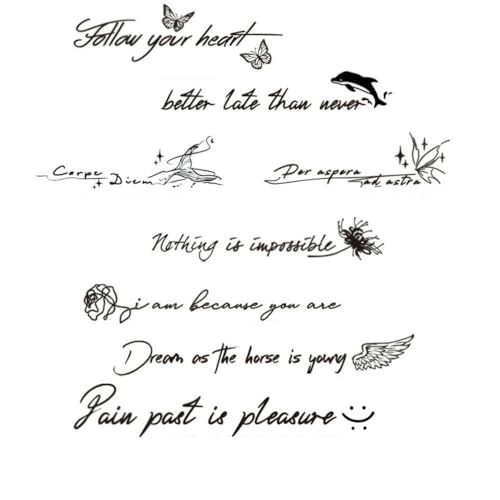 Follow your heart
better late than never
Carpe Diem
Per aspera ad astra
Nothing is impossible
i am because you are
Dream as the horse is young
Pain past is pleasure